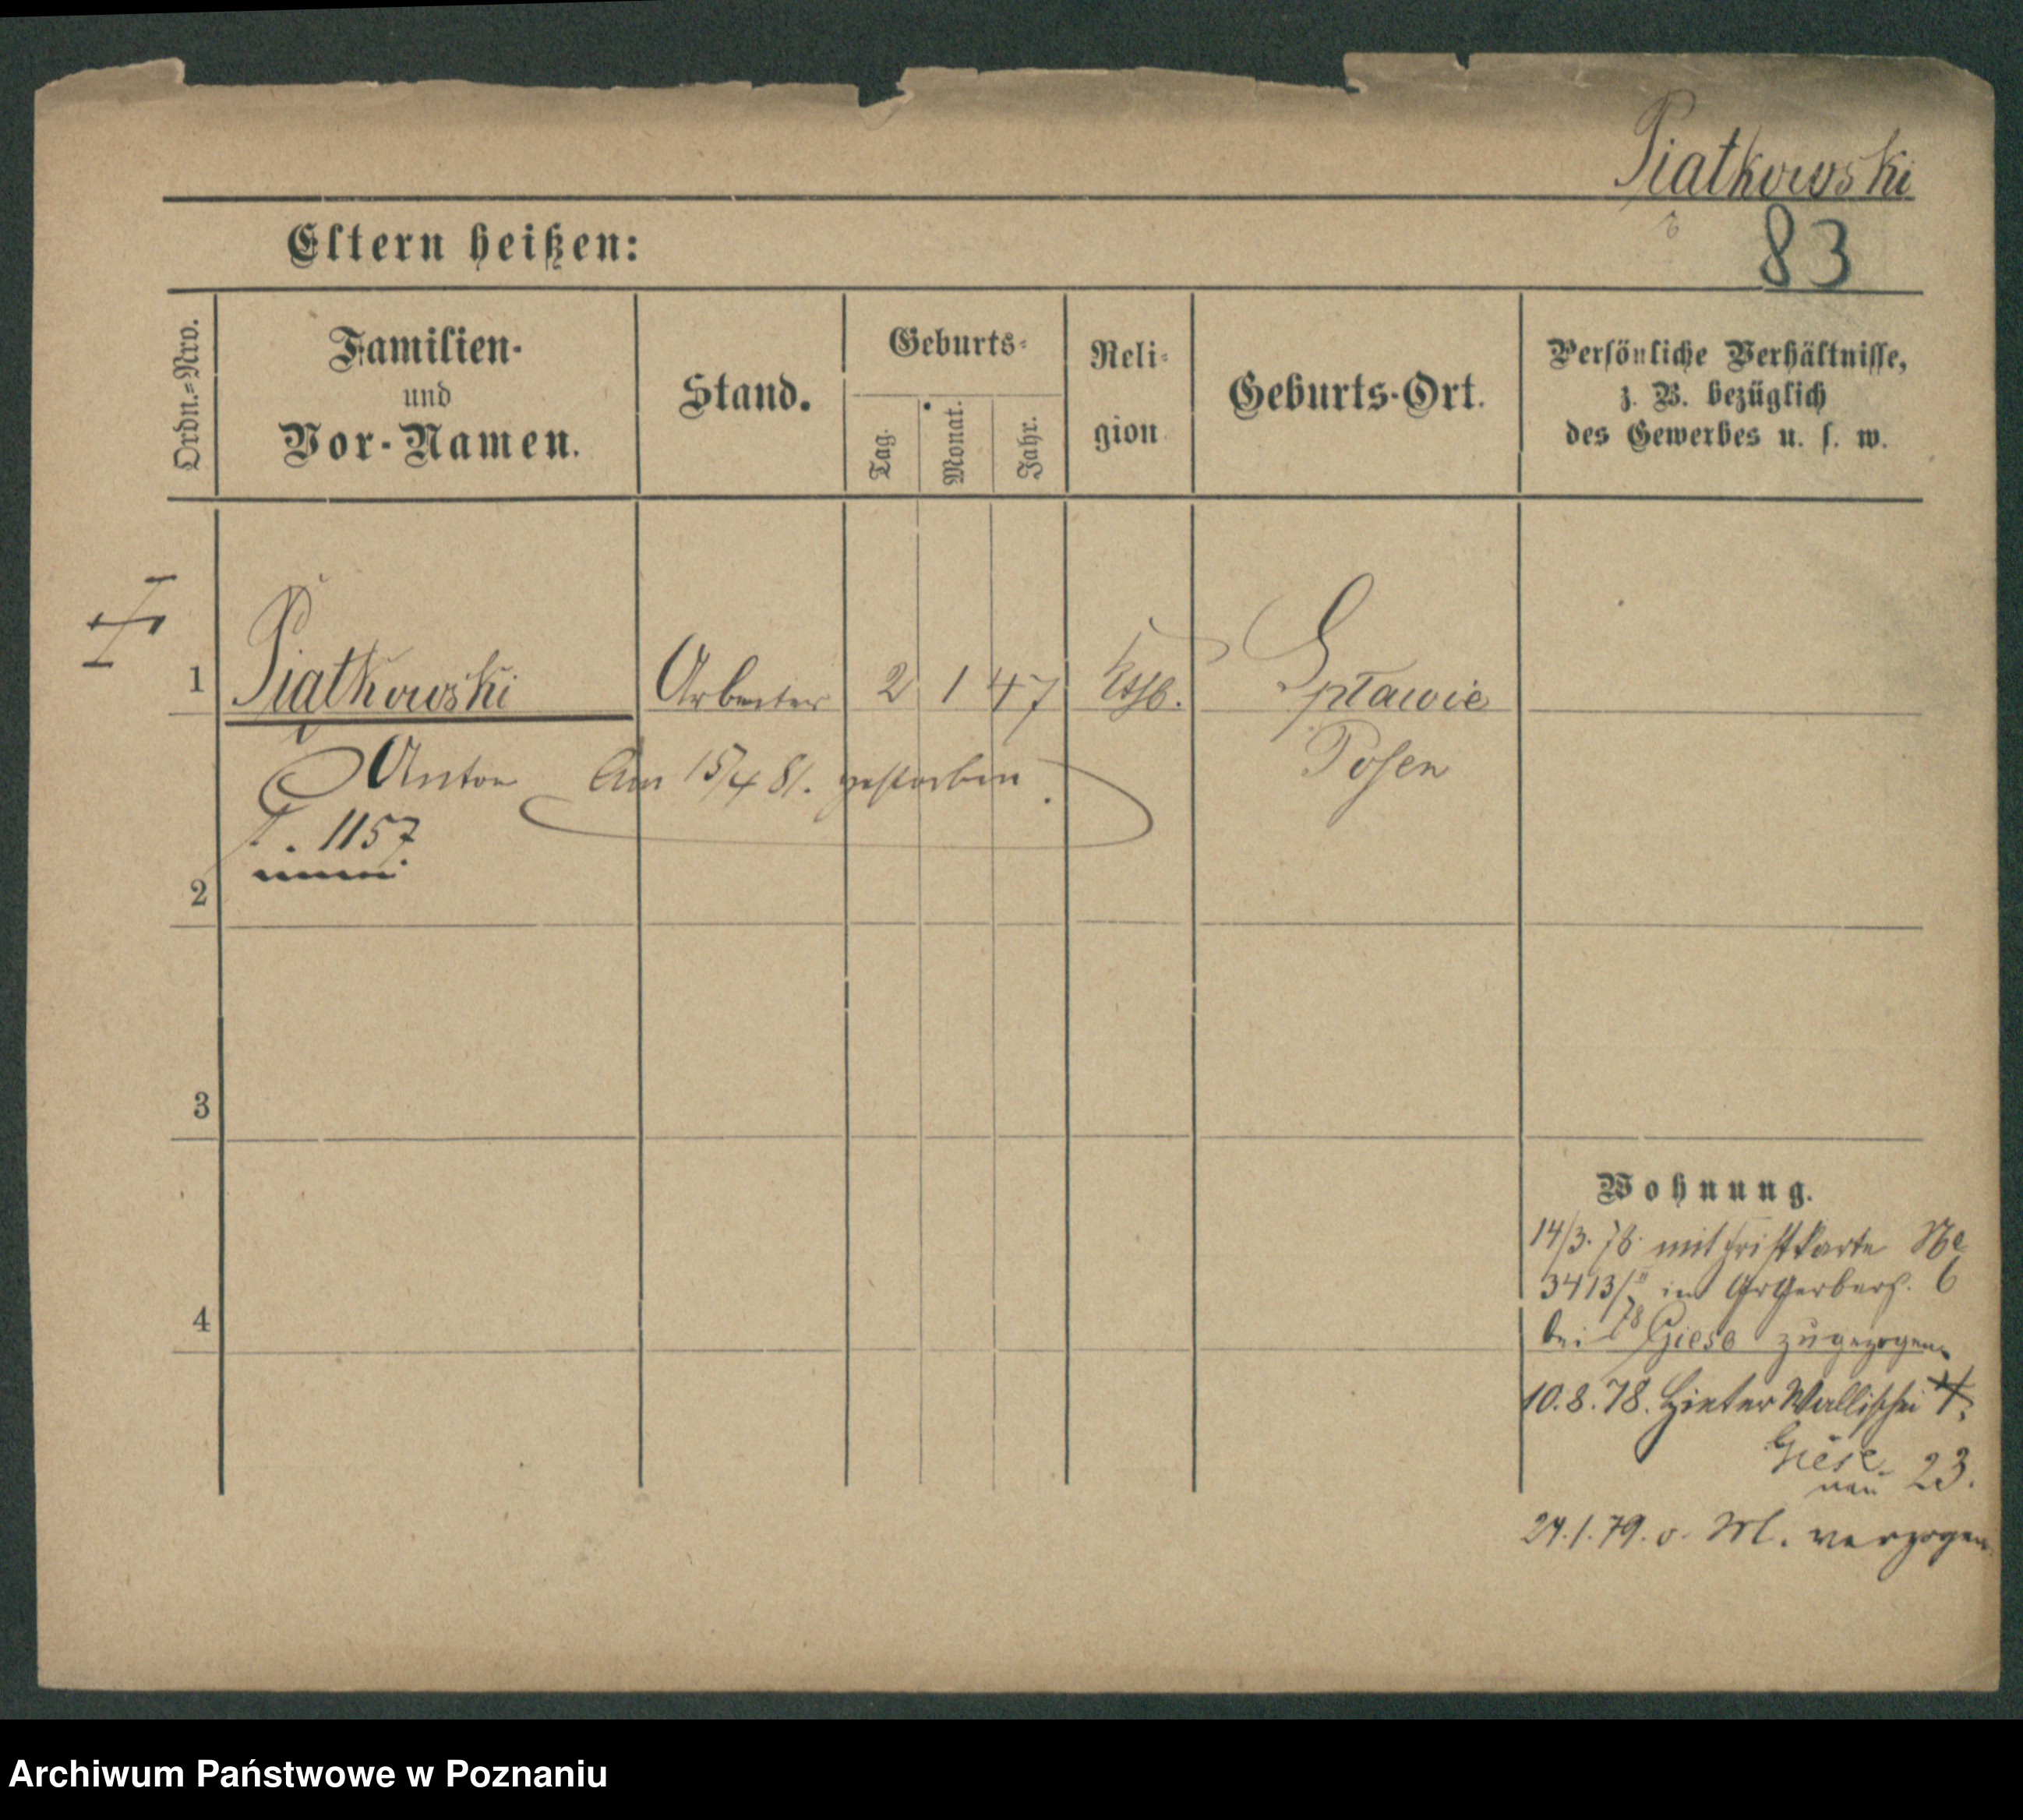 Piatkowski
83
Eltern heißen:
Ordn.-Nro.
Familien-
und
Vor-Namen.
Stand.
Geburts-
Tag.
Monat.
Jahr.
Reli-
gion
Geburts-Ort.
Persönliche Verhältnisse,
z. B. bezüglich
des Gewerbes u. s. w.
1 Piatkowski Arbeiter 2 1 47 kath. Spławie
Posen
Anton Am 15/4 81. gestorben.
1157
2
3
4
Wohnung.
14/3. 78. mit Fristkarte No
3413/II 78 in Gr Gerberst. 6
bei Giese zugezogen.
10.8.78. Hinter Wallischei
Giese
neu 23.
24.1.79. o. M. verzogen
Archiwum Państwowe w Poznaniu